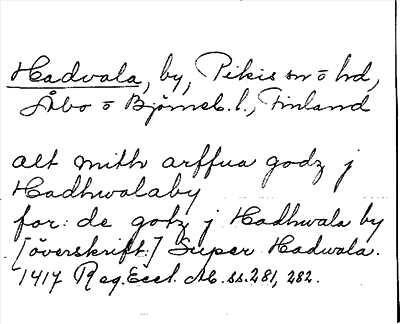 Hadvala, by, Pikis sn o hd,
Åbo o Björneb. l., Finland
alt mith arffua godz j
Hadhwalaby
for: de gotz j Hadhwala by
[överskrift:] Super Hadwala.
1417 Reg. Eccl. Ab. ss. 281, 282.